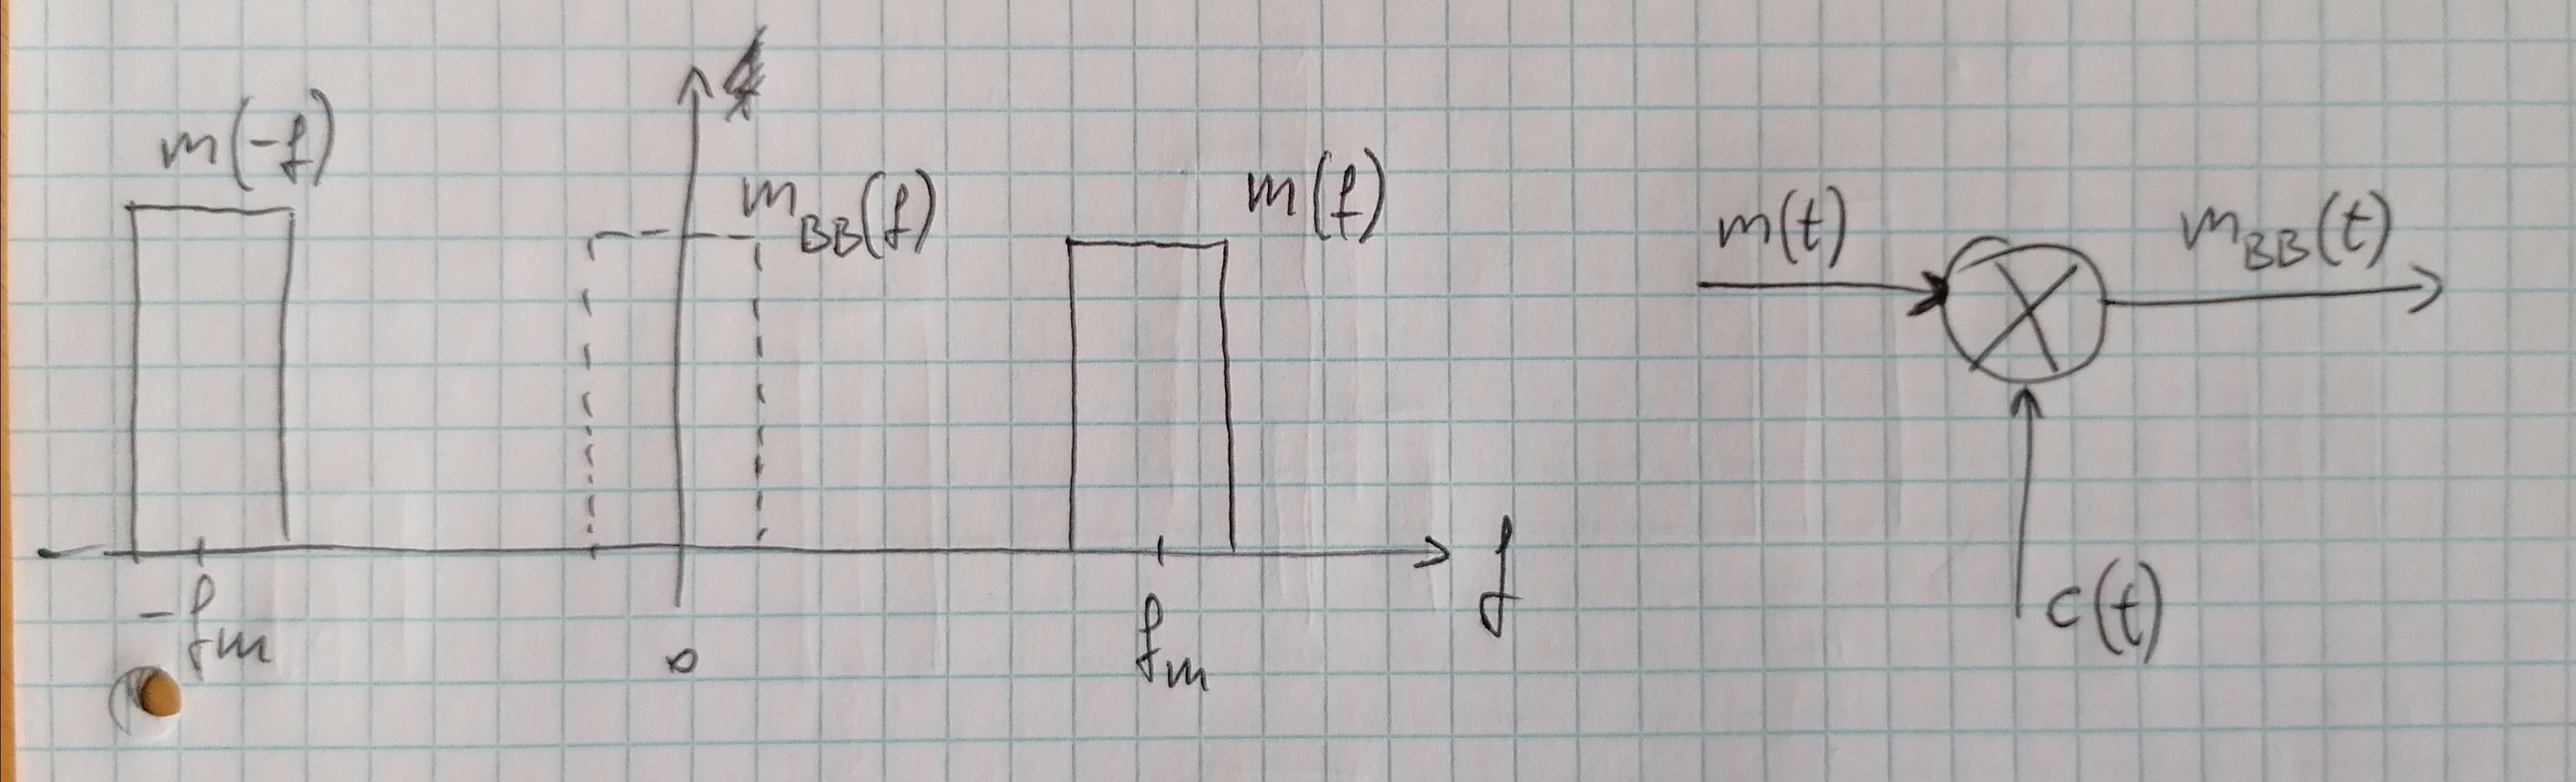 m(-f)
m_BB(f)
m(f)
-f_m
0
f_m
f
m(t)
m_BB(t)
c(t)